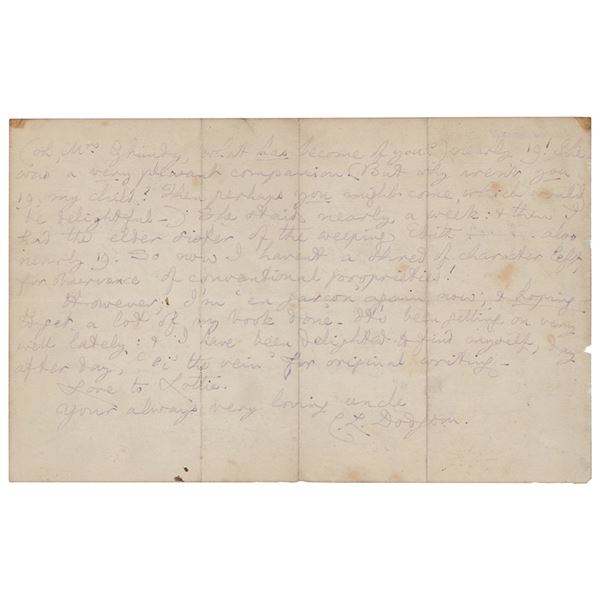 (oh, Mrs. Grundy, what has become of you?) nearly 19! She
was a very pleasant companion. (But why aren't you
19, my child? Then perhaps you might come, which would
be delightful—) She staid nearly a week: & then I
had the elder sister of the weeping Edith also
nearly 19. So now I haven't a shred of character left,
for observance of conventional proprieties!
However, I'm "en garçon" again now, & hoping
to get a lot of my book done. It's been getting on very
well lately: & I have been delighted to find myself, day
after day, "i' the vein" for original writing—
Love to Lottie.
Your always very loving uncle
C. L. Dodgson.